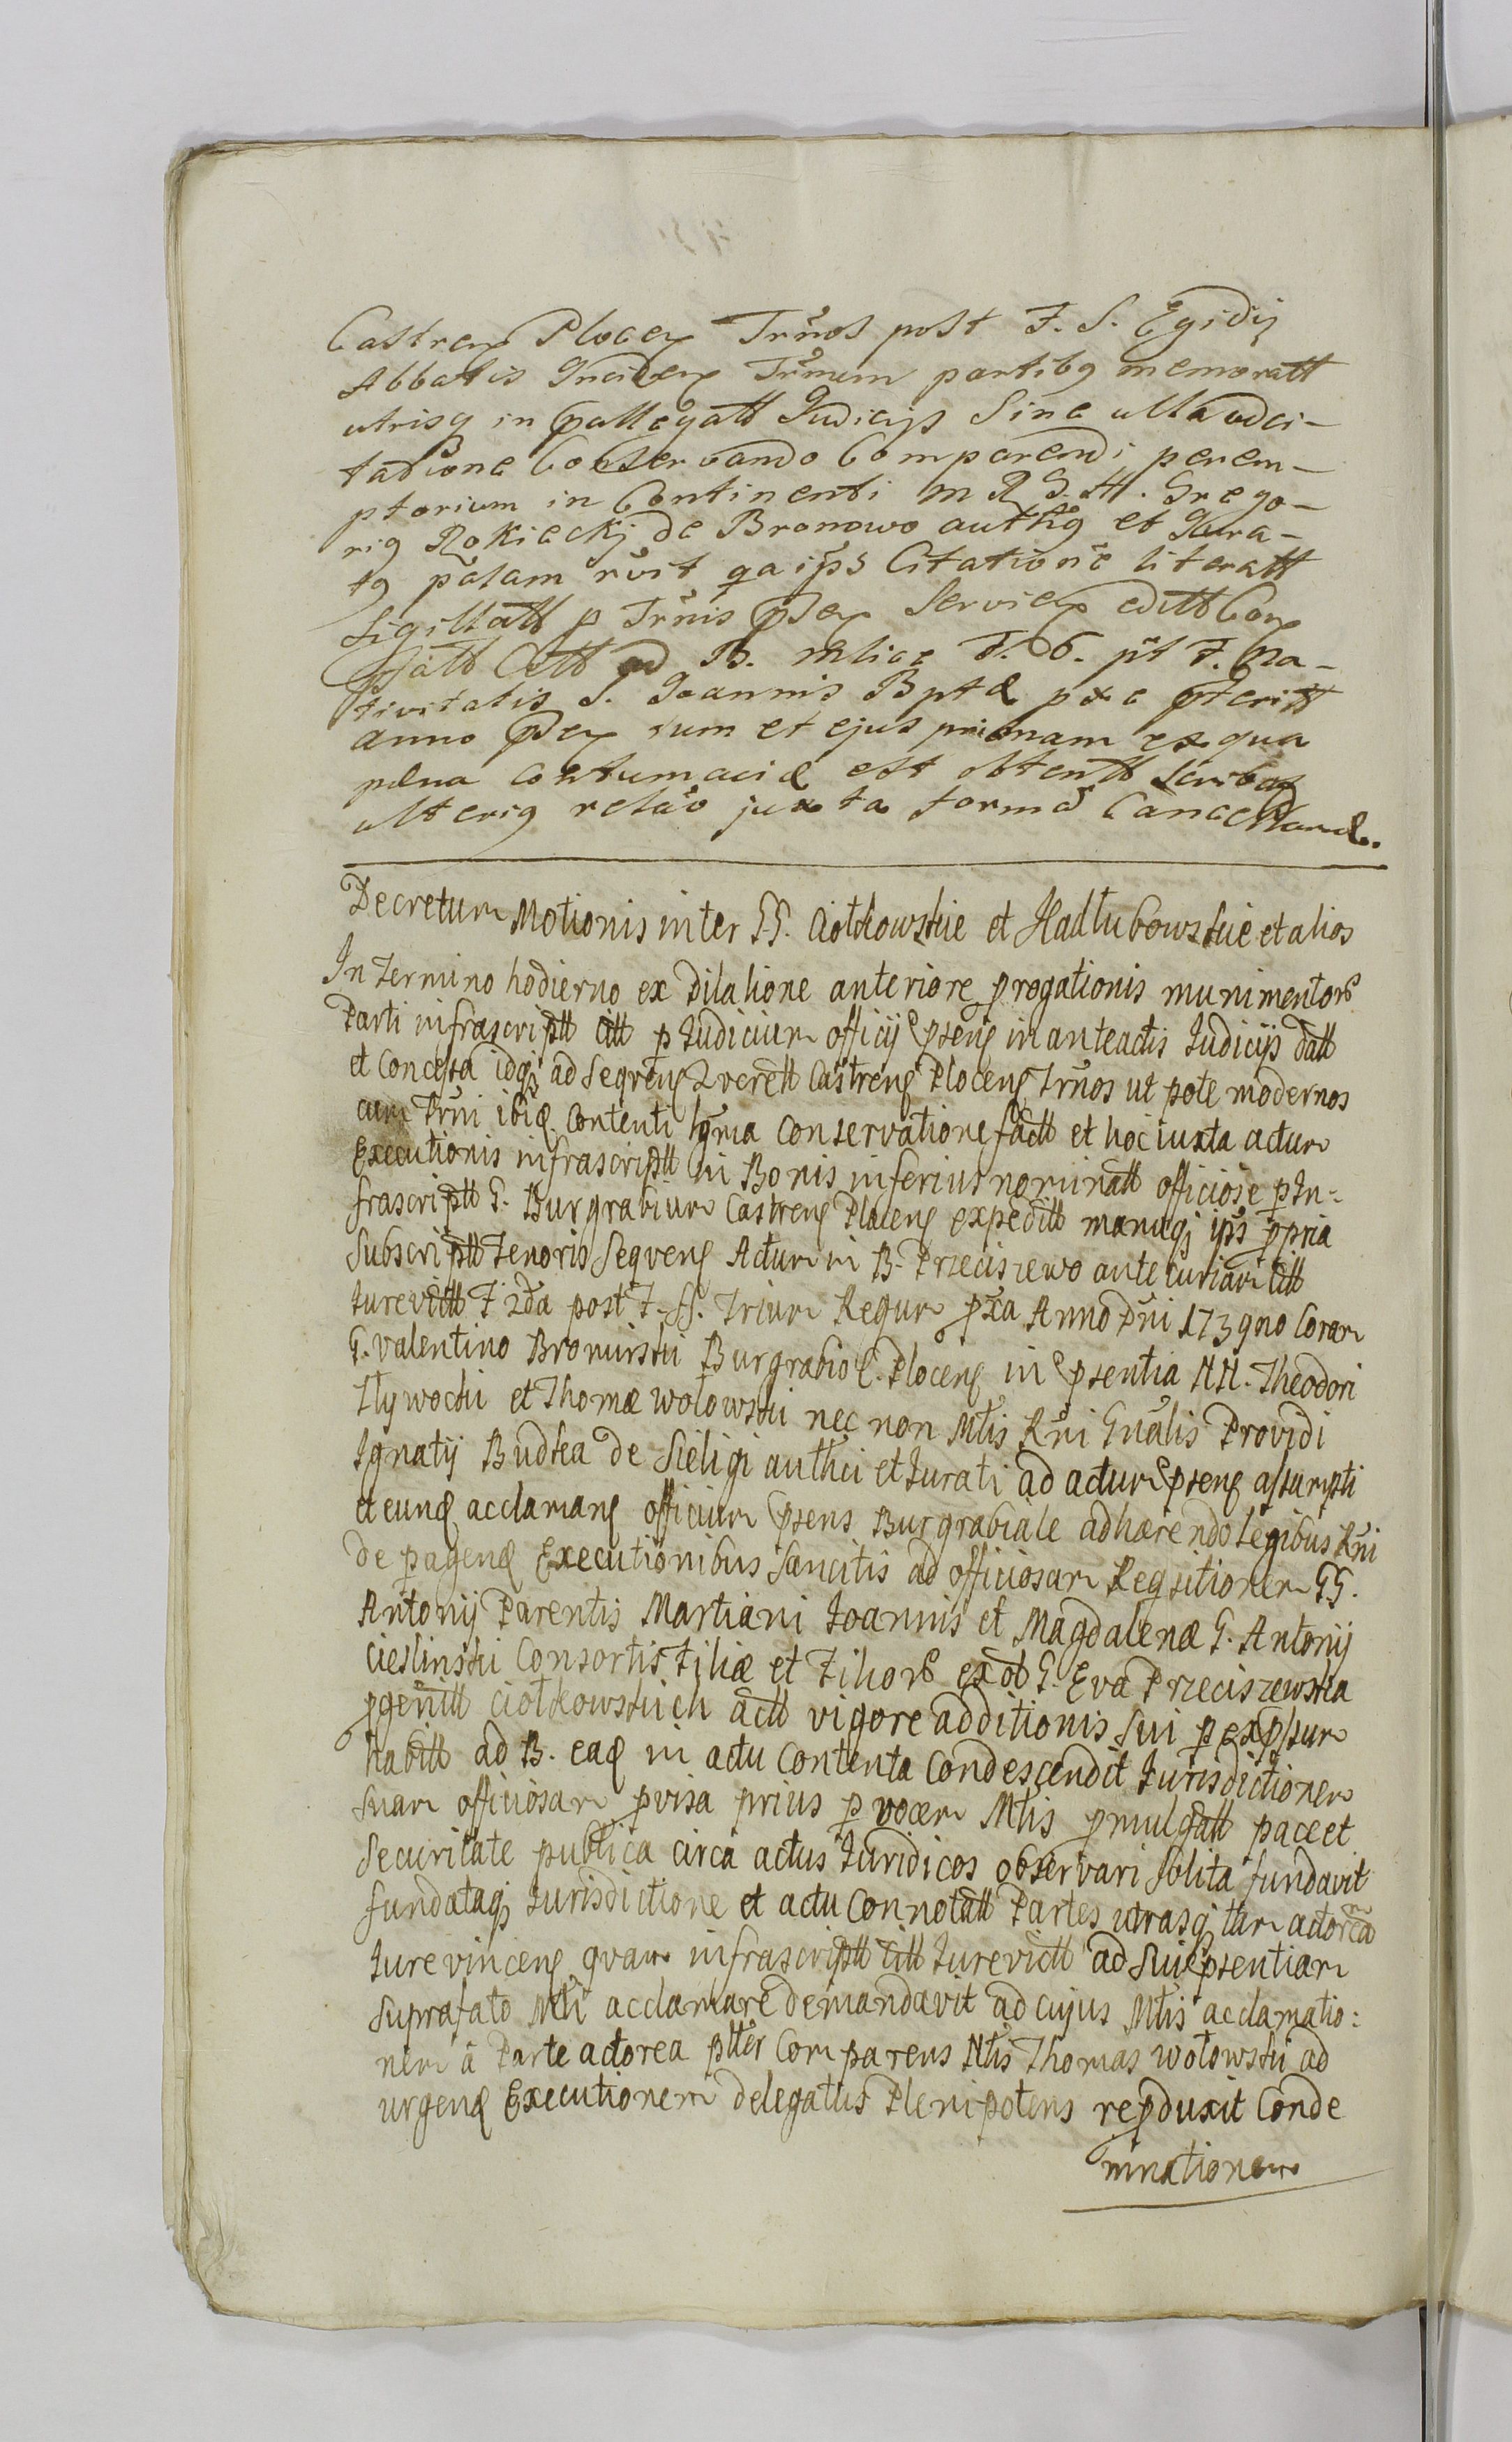 Castren Plocen Trnos post F. S. Egidij
Abbatis Inciden Trnum partibq memoratt
utrisq in pallegatt Judicijs Sine ulla adci-
tatione Conservando Comparendi perem-
ptorium in Continenti M R G. H. Grego-
riq Rokiecki de Bronowo authq et Jura-
tq palam rvit qa ips Citatione literatt
Sigillatt p Trnis psen Servien editt
Citt ad B. Mlice F. 6. pt F. Na-
tivitatis S. Joannis Bptæ pxe pterit
anno Den sum et ejus
pæna Contumaciæ est obtentt Scribat
ulteriq relao juxta forma Cancellariæ.
Decretum Motionis inter GG. Ciołkowskie et Hadłubowskie et alios
In Termino hodierno ex Dilatione anteriore progationis munimentor
Parti infrascriptt Citt p Judicium officij psens in anteactis Judicijs datt
et Concessa idq ad Seqven Qverell Castrens Plocens Trnos ut pote modernos
cum Trni ibid Contenti lgma Conservatione factt et hoc iuxta actum
Executionis infrascriptt in Bonis inferius nominatt officiose p In-
frascriptt G. Burgrabium Castrens Plocens expeditt manuq ips ppria
Subscriptt Tenoris Seqvens Actum in B. Przeciszewo ante Curiam Citt
Jurevictt F 2da post F. SS. Trium Regum pxa Anno Dni 1739no Coram
G. Valentino Bromirski Burgrabio C. Plocens in psentia NN. Theodori
Hywocki et Thomæ Wołowski nec non Mtis Rni Gnalis Providi
Ignatij Budka de Sieligi authci et Jurati ad actum psens assumpti
et eund acclamans officium psens Burgrabiale adhærendo legibus Rni
de pagend Executionibus Sancitis ad officiosam Reqsitionem GG.
Antonij Parentis Martiani Joannis et Magdalenæ G. Antonij
Cieslinski Consortis Filiæ et Filior ex olt G. Eva Przeciszewska
pgenitt Ciołkowskich actt vigore additionis Sui p expssum
habitt ad B. ead in actu Contenta Condescendit Jurisdictionem
Suam officiosam pvisa prius p vocem Mtis pmulgatt pace et
Securitate publica circa actus Juridicos observari Solita fundavit
fundataq Jurisdictione et actu Connotatt Partes utrasq tam actorea
Jurevincens qvam infrascriptt Citt Jurevictt ad Sui psentiam
Suprafato Mtli acclamare demandavit ad cujus Mtis acclamatio:
nem à Parte actorea plter Comparens Ntis Thomas Wołowski ad
urgend Executionem delegatus Plenipotens repduxit Conde
mnationem